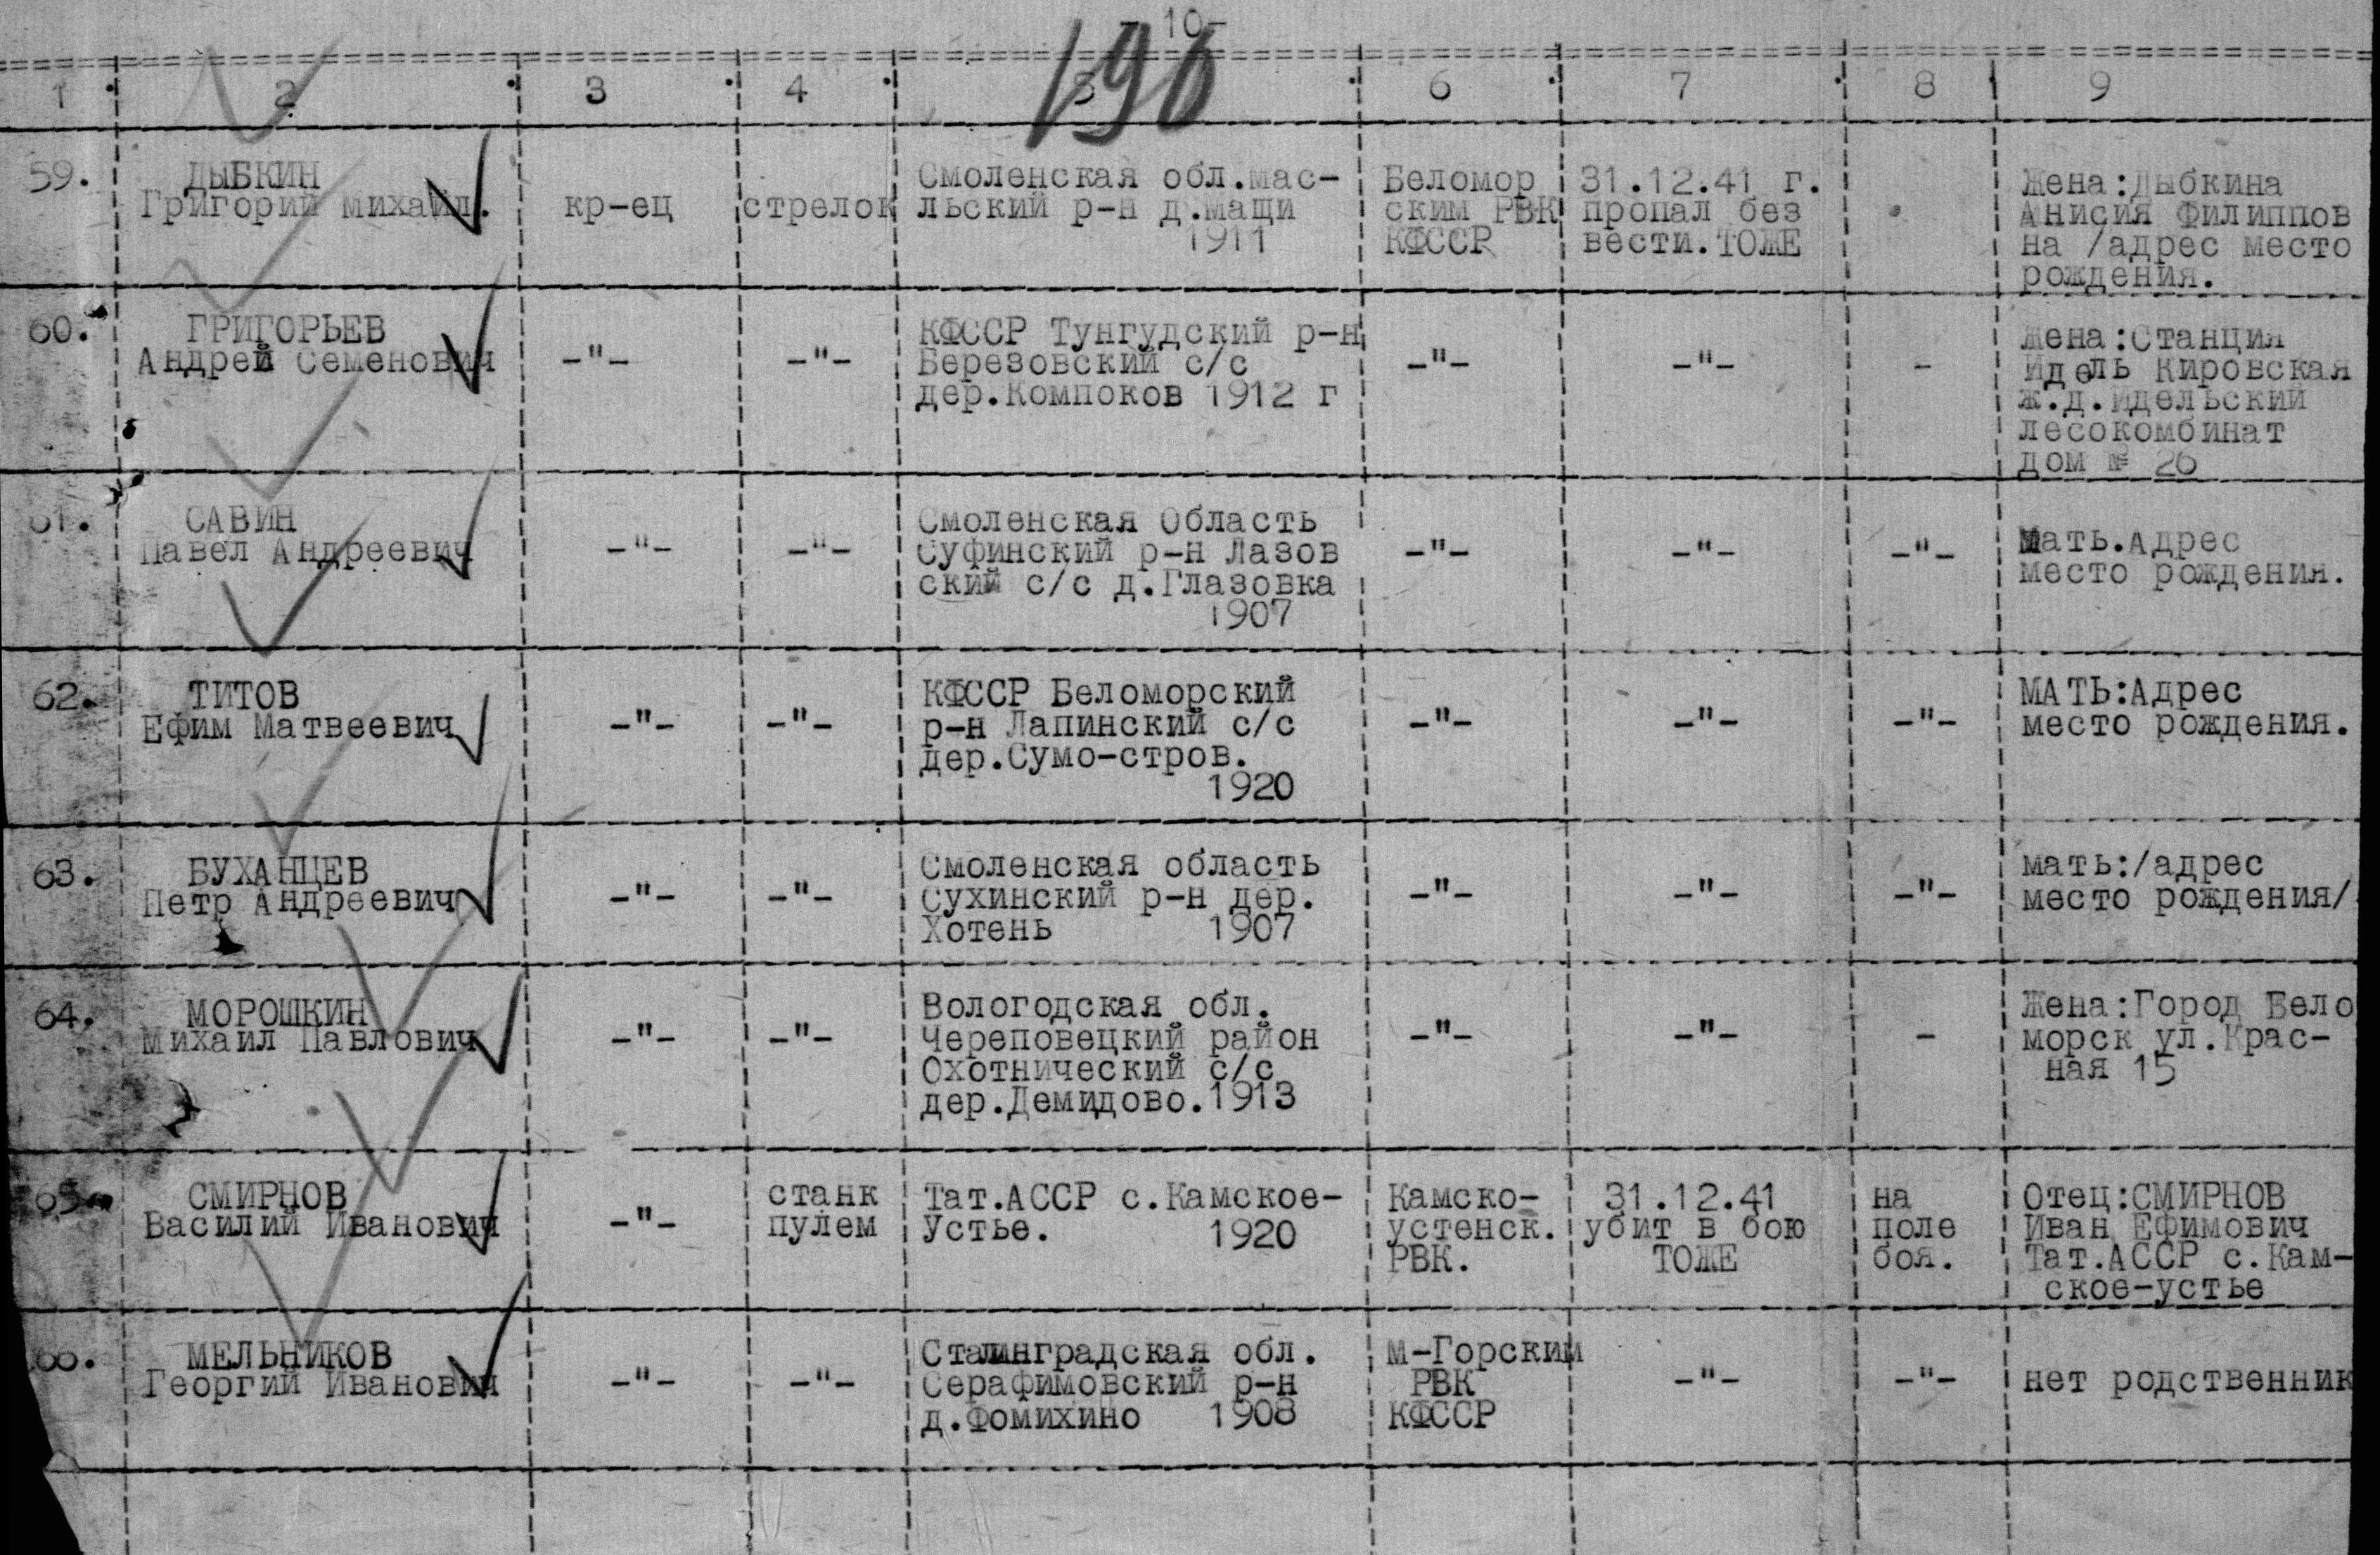 10-
196
1 2 3 4 5 6 7 8 9
59.
ДЫБКИН
Григорий Михайл.
кр-ец
стрелок
Смоленская обл.мас-
льский р-н д.мащи
1911
Беломор
ским РВК
КФССР
31.12.41 г.
пропал без
вести.ТОЖЕ
Жена:Дыбкина
Анисия Филиппов
на /адрес место
рождения.
60.
ГРИГОРЬЕВ
Андрей Семенович
-"-
-"-
КФССР Тунгудский р-н
Березовский с/с
дер.Компоков 1912 г
-"-
-"-
-
Жена:Станция
Идель Кировская
ж.д.Идельский
лесокомбинат
дом № 26
61.
САВИН
Павел Андреевич
-"-
-"-
Смоленская Область
Суфинский р-н Лазов
ский с/с д.Глазовка
1907
-"-
-"-
-"-
Мать.Адрес
место рождения.
62.
ТИТОВ
Ефим Матвеевич
-"-
-"-
КФССР Беломорский
р-н Лапинский с/с
дер.Сумо-стров.
1920
-"-
-"-
-"-
МАТЬ:Адрес
место рождения.
63.
БУХАНЦЕВ
Петр Андреевич
-"-
-"-
Смоленская область
Сухинский р-н дер.
Хотень 1907
-"-
-"-
-"-
мать:/адрес
место рождения/
64.
МОРОШКИН
Михаил Павлович
-"-
-"-
Вологодская обл.
Череповецкий район
Охотнический с/с
дер.Демидово.1913
-"-
-"-
-
Жена:Город Бело
морск ул.Крас-
ная 15
65.
СМИРНОВ
Василий Иванович
-"-
станк
пулем
Тат.АССР с.Камское-
Устье. 1920
Камско-
устенск.
РВК.
31.12.41
убит в бою
ТОЖЕ
на
поле
боя.
Отец:СМИРНОВ
Иван Ефимович
Тат.АССР с.Кам-
ское-устье
66.
МЕЛЬНИКОВ
Георгий Иванович
-"-
-"-
Сталинградская обл.
Серафимовский р-н
д.Фомихино 1908
М-Горским
РВК
КФССР
-"-
-"-
нет родственник